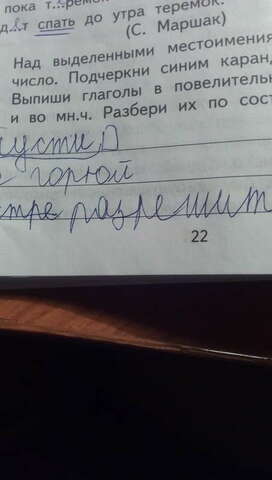 пока т..ремок
д..т спать до утра теремок.
(С. Маршак)
Над выделенными местоимения
число. Подчеркни синим каран
Выпиши глаголы в повелительн
и во мн.ч. Разбери их по сост
пусти
горюй
разрешит
22